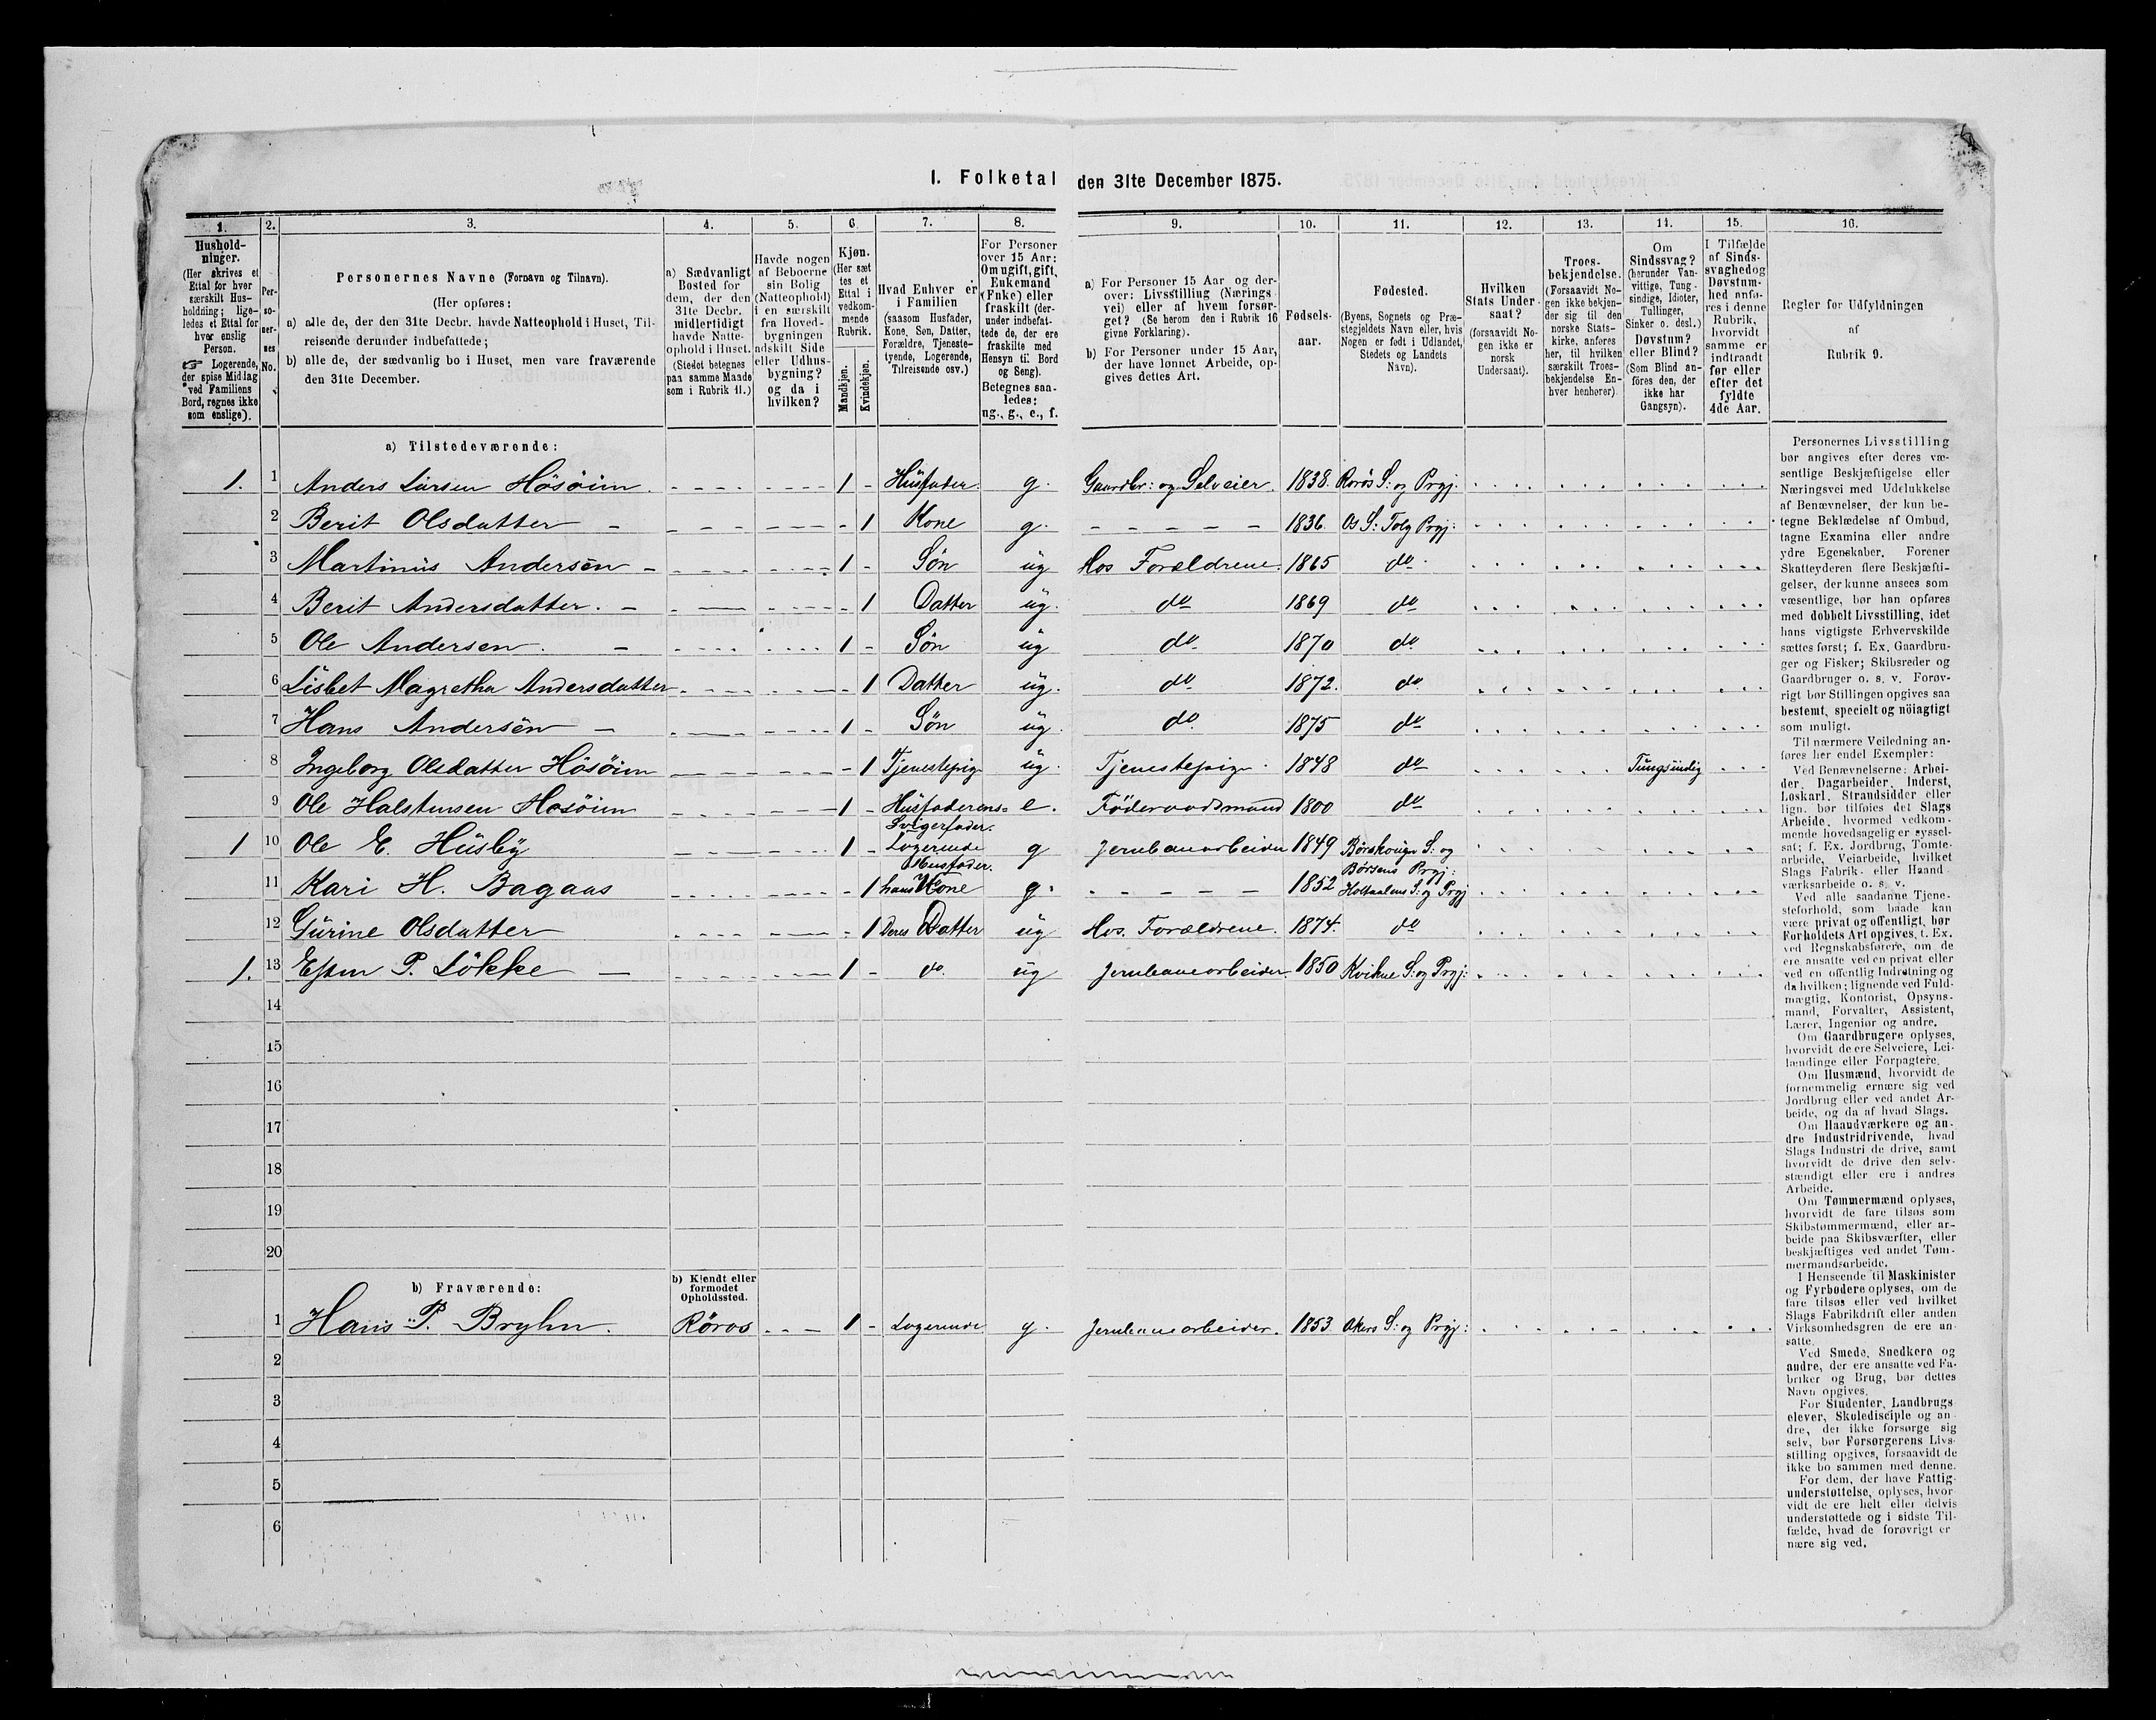 1. Folketal den 31te December 1875.
1. 2. 3. 4. 5. 6. 7. 8. 9. 10. 11. 12. 13. 14. 15. 16.
Hushold-
ninger.
(Her skrives et
Ettal for hver
særskilt Hus-
holdning; lige-
ledes et Ettal for
hver enslig
Person.
☞ Logerende,
der spise Middag
ved Familiens
Bord, regnes ikke
som enslige).
Per-
so-
ner-
nes
No.
Personernes Navne (Fornavn og Tilnavn).
(Her opføres:
a) alle de, der den 31te Decbr. havde Natteophold i Huset, Til-
reisende derunder indbefattede;
b) alle de, der sædvanlig bo i Huset, men vare fraværende
den 31te December.
a) Sædvanligt
Bosted for
dem, der den
31te Decbr.
midlertidigt
havde Natte-
ophold i Huset.
(Stedet betegnes
paa samme Maade
som i Rubrik 11.)
Havde nogen
af Beboerne
sin Bolig
(Natteophold)
i en særskilt
fra Hoved-
bygningen
adskilt Side
eller Udhus-
bygning?
og da i
hvilken?
Kjøn.
(Her sæt
tes et
Ettal i
vedkom-
mende
Rubrik.
Mandkjøn.
Kvindekjøn.
Hvad Enhver er
i Familien
(saasom Husfader,
Kone, Søn, Datter,
Forældre, Tjeneste-
tyende, Logerende,
Tilreisende osv.)
For Personer
over 15 Aar:
Om ugift, gift,
Enkemand
(Enke) eller
fraskilt (der-
under indbefat-
tede de, der ere
fraskilte med
Hensyn til Bord
og Seng).
Betegnes saa-
ledes:
ug., g., e., f.
a) For Personer 15 Aar og der-
over: Livsstilling (Nærings
vei) eller af hvem forsør-
get? (Se herom den i Rubrik 16
givne Forklaring).
b) For Personer under 15 Aar,
der have lønnet Arbeide, op-
gives dettes Art.
Fødsels-
aar.
Fødested.
(Byens, Sognets og Præ-
stegjeldets Navn eller, hvis
Nogen er født i Udlandet,
Stedets og Landets
Navn).
Hvilken
Stats Under-
saat?
(forsaavidt No-
gen ikke er
norsk
Undersaat).
Troes-
bekjendelse.
(Forsaavidt No-
gen ikke bekjen-
der sig til den
norske Stats-
kirke, anføres
her, til hvilken
særskilt Troes-
bekjendelse En-
hver henhører).
Om
Sindssvag?
(herunder Van-
vittige, Tung-
sindige, Idioter,
Tullinger,
Sinker o. desl.)
Døvstum?
eller Blind?
(Som Blind an-
føres den, der
ikke har
Gangsyn).
I Tilfælde
af Sinds-
svaghed og
Døvstum-
hed anfø-
res i denne
Rubrik,
hvorvidt
samme er
indtraadt
før eller
efter det
fyldte
4de Aar.
Regler for Udfyldningen
af
Rubrik 9.
a) Tilstedeværende:
1. 1 Anders Larsen Hösöien. 1 - Husfader. g. Gaardbr: og Selveier. 1838. Rorös S: og Prgj.
2 Berit Olsdatter - 1 Kone g. 1836. Os S: Tolg Prgj:
3 Martinus Andersen - 1 - Søn ug Hos Forældrene. 1865 do
4 Berit Andersdatter. - 1 Datter ug. do 1869 do
5 Ole Andersen. 1 - Søn ug do 1870 do
6 Lisbet Magretha Andersdatter 1 Datter ug. do 1872. do
7 Hans Andersen 1 - Søn ug. do 1875 do
8 Ingeborg Olsdatter Hösöien 1 Tjenestepige ug. Tjenestepige. 1848 do Tungsindig
9 Ole Halstensen Hosöien 1 - Husfaderens e. Föderaadsmand 1800 do
Svigerfader.
1 10 Ole E. Husby 1 - Logerende g Jernbanearbeider 1849 Börskongn S: og
Husfader. Börsens Prgj:
11 Kari H. Bagaas 1 hans Kone g. 1852 Holtaalens S: og Prgj
12 Gurine Olsdatter 1 Deres Datter ug Hos. Forældrene. 1874. do
1. 13 Espen P. Lökke 1 - do. ug Jernbanearbeider. 1850 Kvikne S: og Prgj:
14
15
16
17
18
19
20
b) Fraværende:
b) Kjendt eller
formodet
Opholdssted.
1 Hans P. Bryhn. Röros 1 - Logerende g. Jernbanearbeider. 1853. Akers S: og Prgj:
2
3
4
5
6
Personernes Livsstilling
bør angives efter deres væ-
sentlige Beskjæftigelse eller
Næringsvei med Udelukkelse
af Benævnelser, der kun be-
tegne Beklædelse af Ombud,
tagne Examina eller andre
ydre Egenskaber. Forener
Skatteyderen flere Beskjæfti-
gelser, der kunne ansees som
væsentlige, bør han opføres
med dobbelt Livsstilling, idet
hans vigtigste Erhvervskilde
sættes først; f. Ex. Gaardbru-
ger og Fisker; Skibsreder og
Gaardbruger o. s. v. Forøv-
rigt bør Stillingen opgives saa
bestemt, specielt og nöiagtigt
som muligt.
Til nærmere Veiledning an-
føres her endel Exempler:
Ved Benævnelserne: Arbei-
der, Dagarbeider, Inderst,
Løskarl, Strandsidder eller
lign. bør tilføies det Slags
Arbeide, hvormed vedkom-
mende hovedsagelig er syssel-
sat; f. Ex. Jordbrug, Tomte-
arbeide, Veiarbeide, hvilket
Slags Fabrik- eller Haand-
værksarbeide o. s. v.
Ved alle saadanne Tjene-
steforhold, som baade kan
være privat og offentligt, bør
Forholdets Art opgives, f. Ex.
ved Regnskabsførere, om de
ere ansatte ved en privat eller
ved en offentlig Indretning og
da hvilken; lignende ved Fuld-
mægtig, Kontorist, Opsyns-
mand, Forvalter, Assistent,
Lærer, Ingeniør og andre.
Om Gaardbrugere oplyses,
hvorvidt de ere Selveiere, Lei-
lændinge eller Forpagtere.
Om Husmænd, hvorvidt de
fornemmelig ernære sig ved
Jordbrug eller ved andet Ar-
beide, og da af hvad Slags.
Om Haandværkere og an-
dre Industridrivende, hvad
Slags Industri de drive, samt
hvorvidt de drive den selv-
stændigt eller ere i andres
Arbeide.
Om Tømmermænd oplyses,
hvorvidt de fare tilsøs som
Skibstømmermænd, eller ar-
beide paa Skibsværfter, eller
beskjæftiges ved andet Tøm-
mermandsarbeide.
I Henseende til Maskinister
og Fyrbødere oplyses, om de
fare tilsøs eller ved hvilket
Slags Fabrikdrift eller anden
Virksomhedsgren de ere an-
satte.
Ved Smede, Snedkere og
andre, der ere ansatte ved Fa-
briker og Brug, bør dettes
Navn opgives.
For Studenter, Landbrugs
elever, Skoledisciple og an-
dre, der ikke forsørge sig
selv, bør Forsørgerens Livs-
stilling opgives, forsaavidt de
ikke bo sammen med denne.
For dem, der have Fattig-
understøttelse, oplyses, hvor-
vidt de ere helt eller delvis
understøttede og i sidste Til-
fælde, hvad de forøvrigt er
nære sig ved.